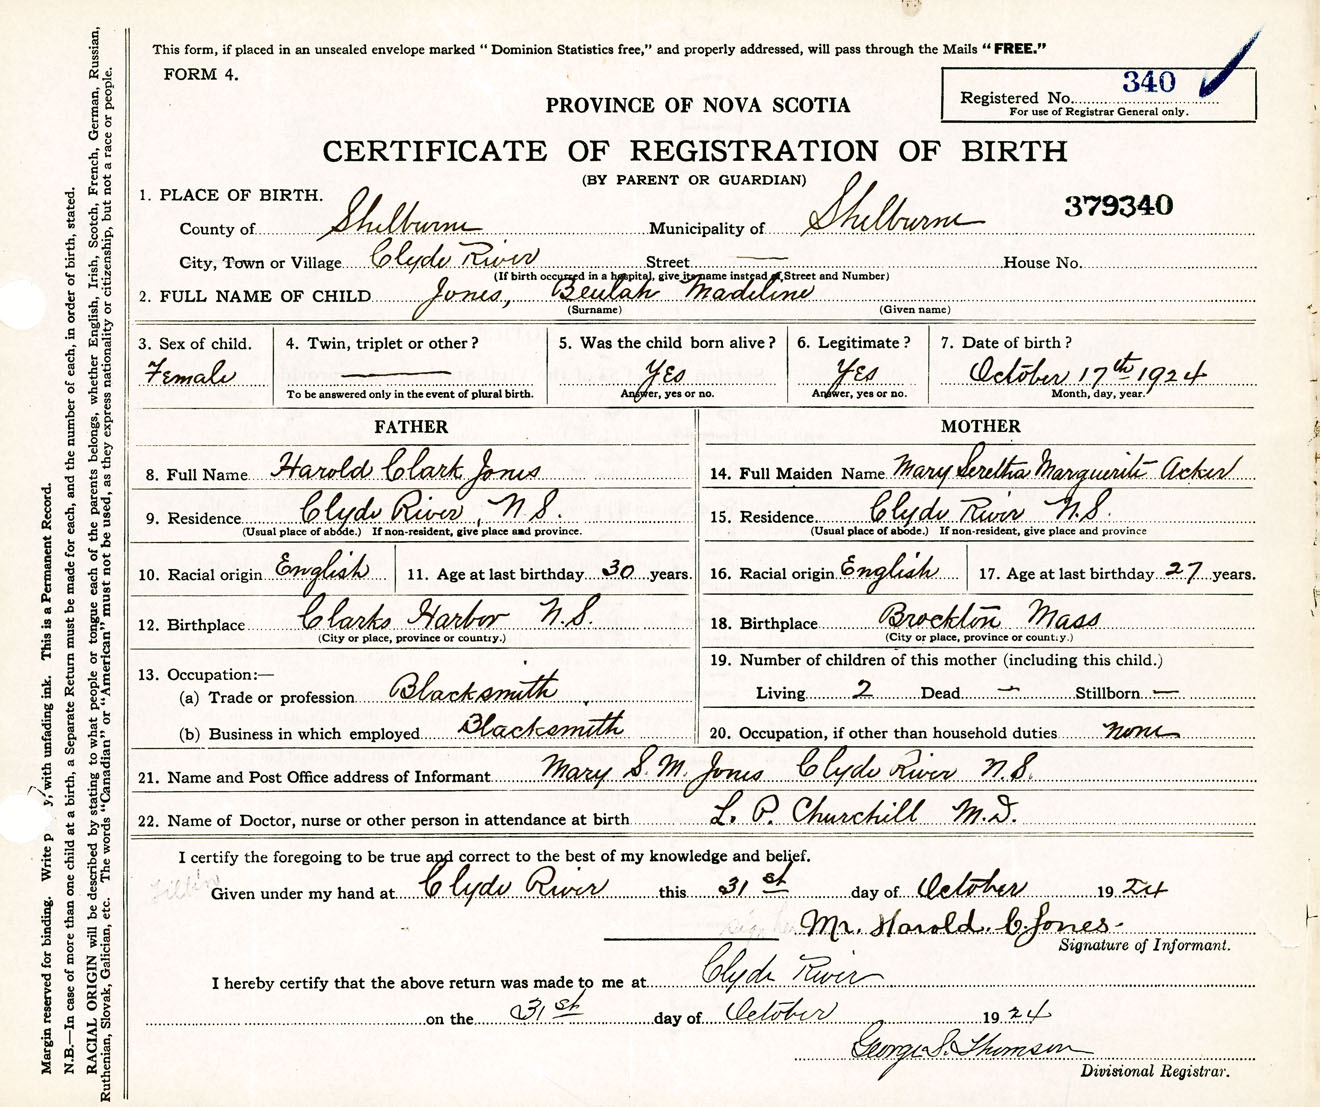 This form, if placed in an unsealed envelope marked "Dominion Statistics free," and properly addressed, will pass through the Mails "FREE."
FORM 4.
340
Registered No.
For use of Registrar General only.
PROVINCE OF NOVA SCOTIA
CERTIFICATE OF REGISTRATION OF BIRTH
(BY PARENT OR GUARDIAN)
379340
1. PLACE OF BIRTH.
County of Shelburne Municipality of Shelburne
City, Town or Village Clyde River Street — House No.
(If birth occurred in a hospital, give its name instead of Street and Number)
2. FULL NAME OF CHILD Jones, Beulah Madeline
(Surname) (Given name)
3. Sex of child. 4. Twin, triplet or other? 5. Was the child born alive? 6. Legitimate? 7. Date of birth?
Female — Yes Yes October 17th 1924
To be answered only in the event of plural birth. Answer, yes or no. Answer, yes or no. Month, day, year.
FATHER MOTHER
8. Full Name Harold Clark Jones 14. Full Maiden Name Mary Seretha Marguerite Acker
9. Residence Clyde River, N.S. 15. Residence Clyde River N.S.
(Usual place of abode.) If non-resident, give place and province. (Usual place of abode.) If non-resident, give place and province
10. Racial origin English 11. Age at last birthday 30 years. 16. Racial origin English 17. Age at last birthday 27 years.
12. Birthplace Clarks Harbor N.S. 18. Birthplace Brockton Mass
(City or place, province or country.) (City or place, province or country.)
13. Occupation:— 19. Number of children of this mother (including this child.)
(a) Trade or profession Blacksmith Living 2 Dead — Stillborn —
(b) Business in which employed Blacksmith 20. Occupation, if other than household duties none
21. Name and Post Office address of Informant Mary S. M. Jones Clyde River N.S.
22. Name of Doctor, nurse or other person in attendance at birth L. P. Churchill M.D.
I certify the foregoing to be true and correct to the best of my knowledge and belief.
Given under my hand at Clyde River this 31st day of October 1924
Mr. Harold. C. Jones.
Signature of Informant.
I hereby certify that the above return was made to me at Clyde River
on the 31st day of October 1924
George S. Thomson
Divisional Registrar.
Margin reserved for binding. Write p y, with unfading ink. This is a Permanent Record.
N.B.—In case of more than one child at a birth, a Separate Return must be made for each, and the number of each, in order of birth, stated.
RACIAL ORIGIN will be described by stating to what people or tongue each of the parents belongs, whether English, Irish, Scotch, French, German, Russian,
Ruthenian, Slovak, Galician, etc. The words "Canadian" or "American" must not be used, as they express nationality or citizenship, but not a race or people.